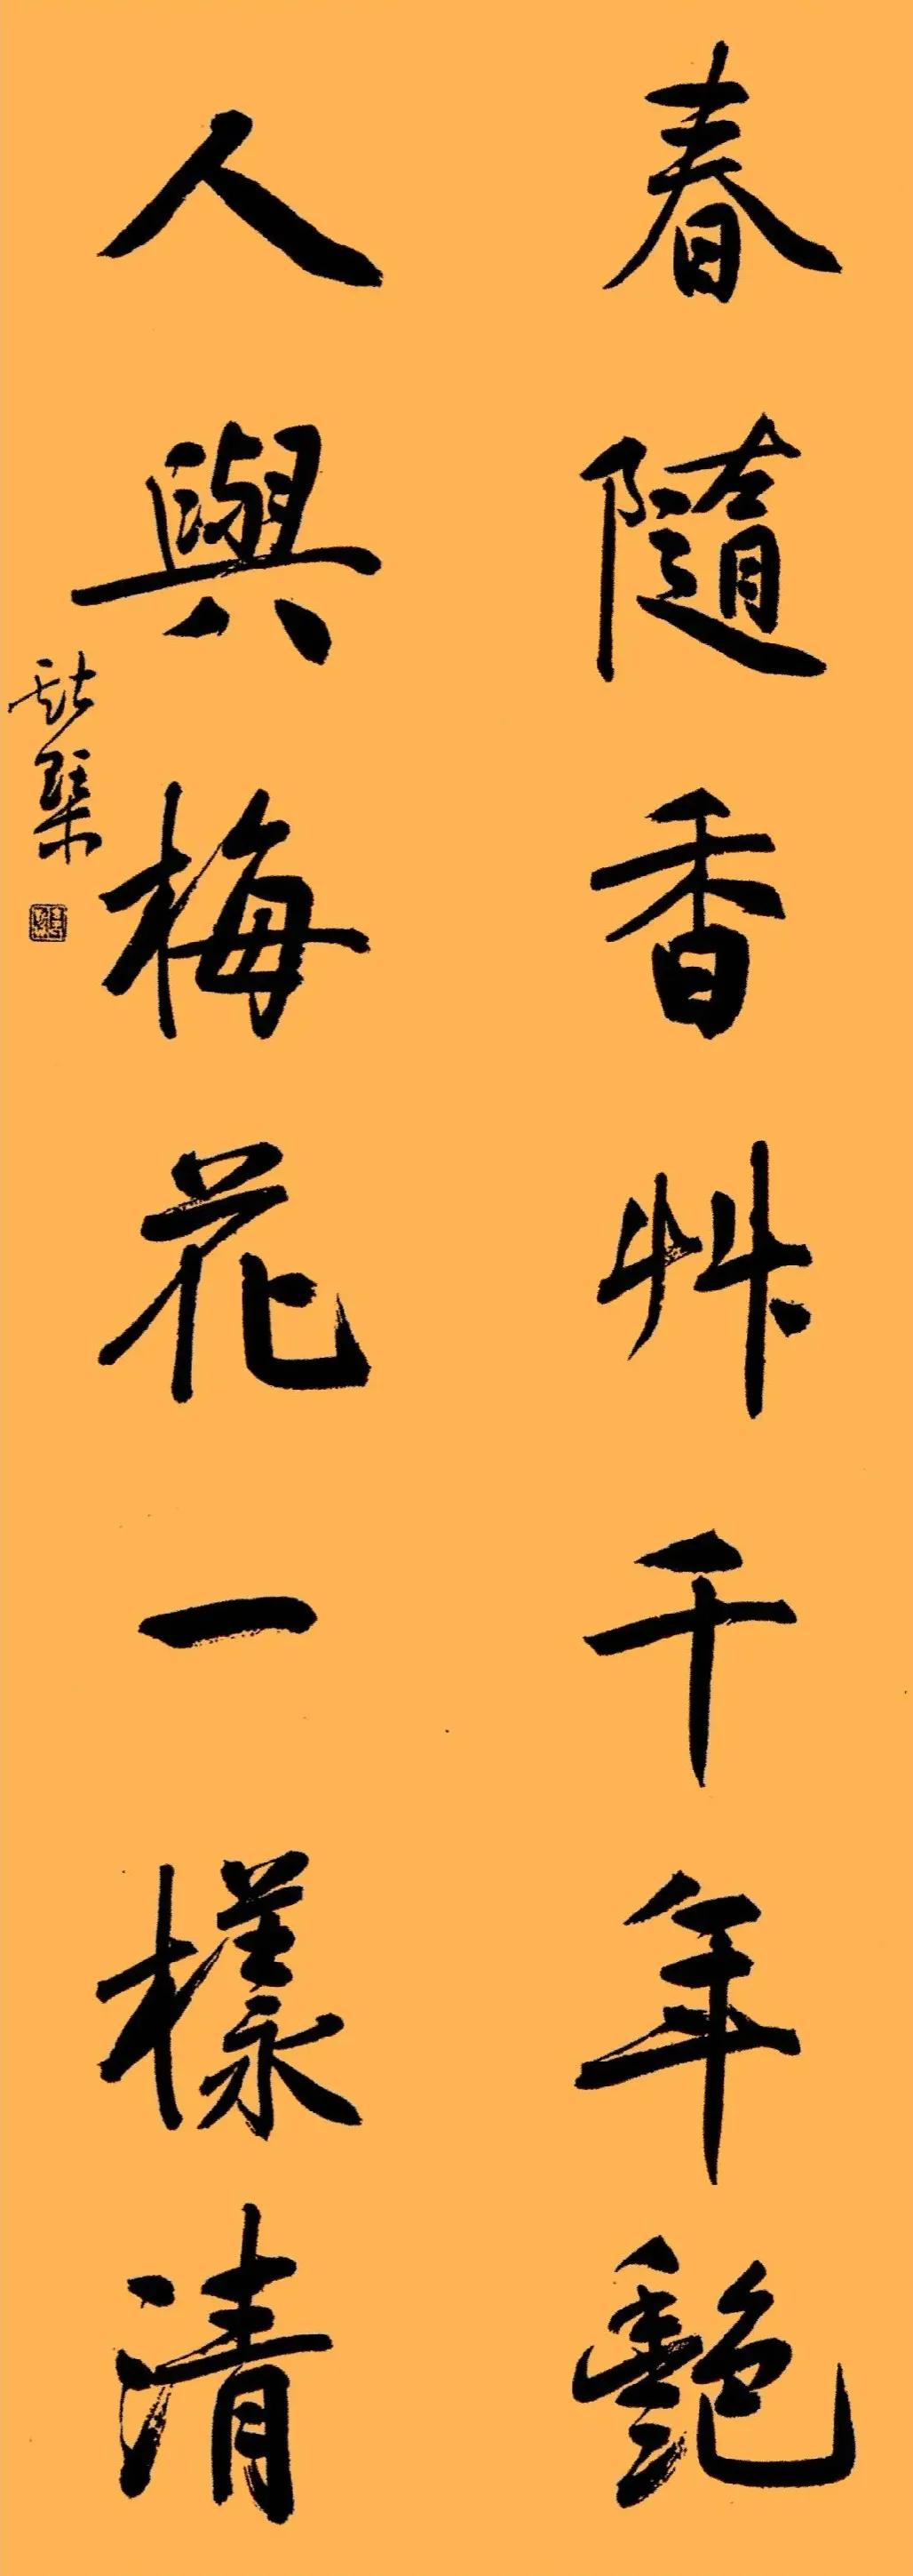 春隨香艸千年艷
人與梅花一樣清